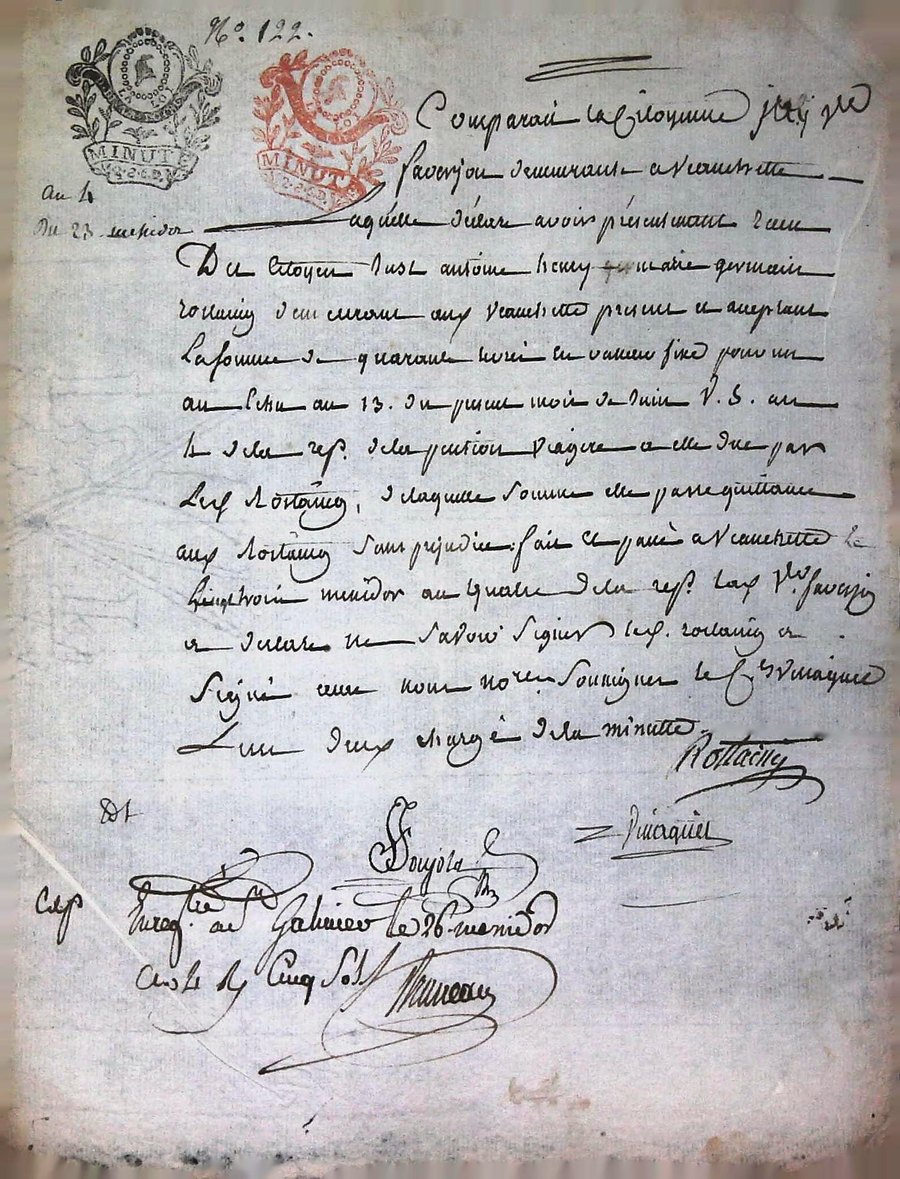 N.º 122.
MINUTE
MINUTE
Comparait la Citoyenne vve
an 4
faverjon demeurante a Veauchette
Du 23 messidor
aquelle déclare avoir présentement recu
Du Citoyen Just antoine henry marie germain
rostaing demeurant aux Veauchette présent et aceptant
La somme de quarante livres en valeur fixe pour un
an Echu au 13. du present mois de Juin V. S. an
4 de la rep. de la pention viagere a elle due par
Led Rostaing, de laquelle somme elle passe quittance
aux Rostaing sans prejudice. fait et passé a Veauchette le
Vingt trois messidor an quatre de la rep. lad vve. faverjon
a declaré ne savoir signer led. rostaing a
signé avec nous nores soussignés le Cen
L'un deux chargé de la minutte.
Rostaing
Dt
Enregtré au St Galmier le 26. messidor
an 4 Rç Cinq Sols